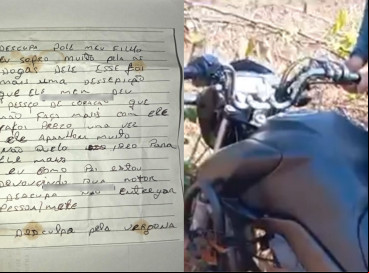 DESCUPA MEU FILHO
EU SOFRO MUITO PELA AS
DOGAS DELE ESSE FOI
MAIS UMA DESSEPIÇÃO
QUE ELE MEM DEU
PESSO DE CORAÇÃO QUE
NÃO FAÇA MAIS COM ELE
UMA VEZ
ELE APANHOU MUITO
NÃO QUELO PARA
ELE MAIS
EU COMO PAI ESTOU
DEVOVENDO SUA MOTOR
DESCUPA NÃO ENTREGAR
PESSOALMETE
DESCULPA PELA